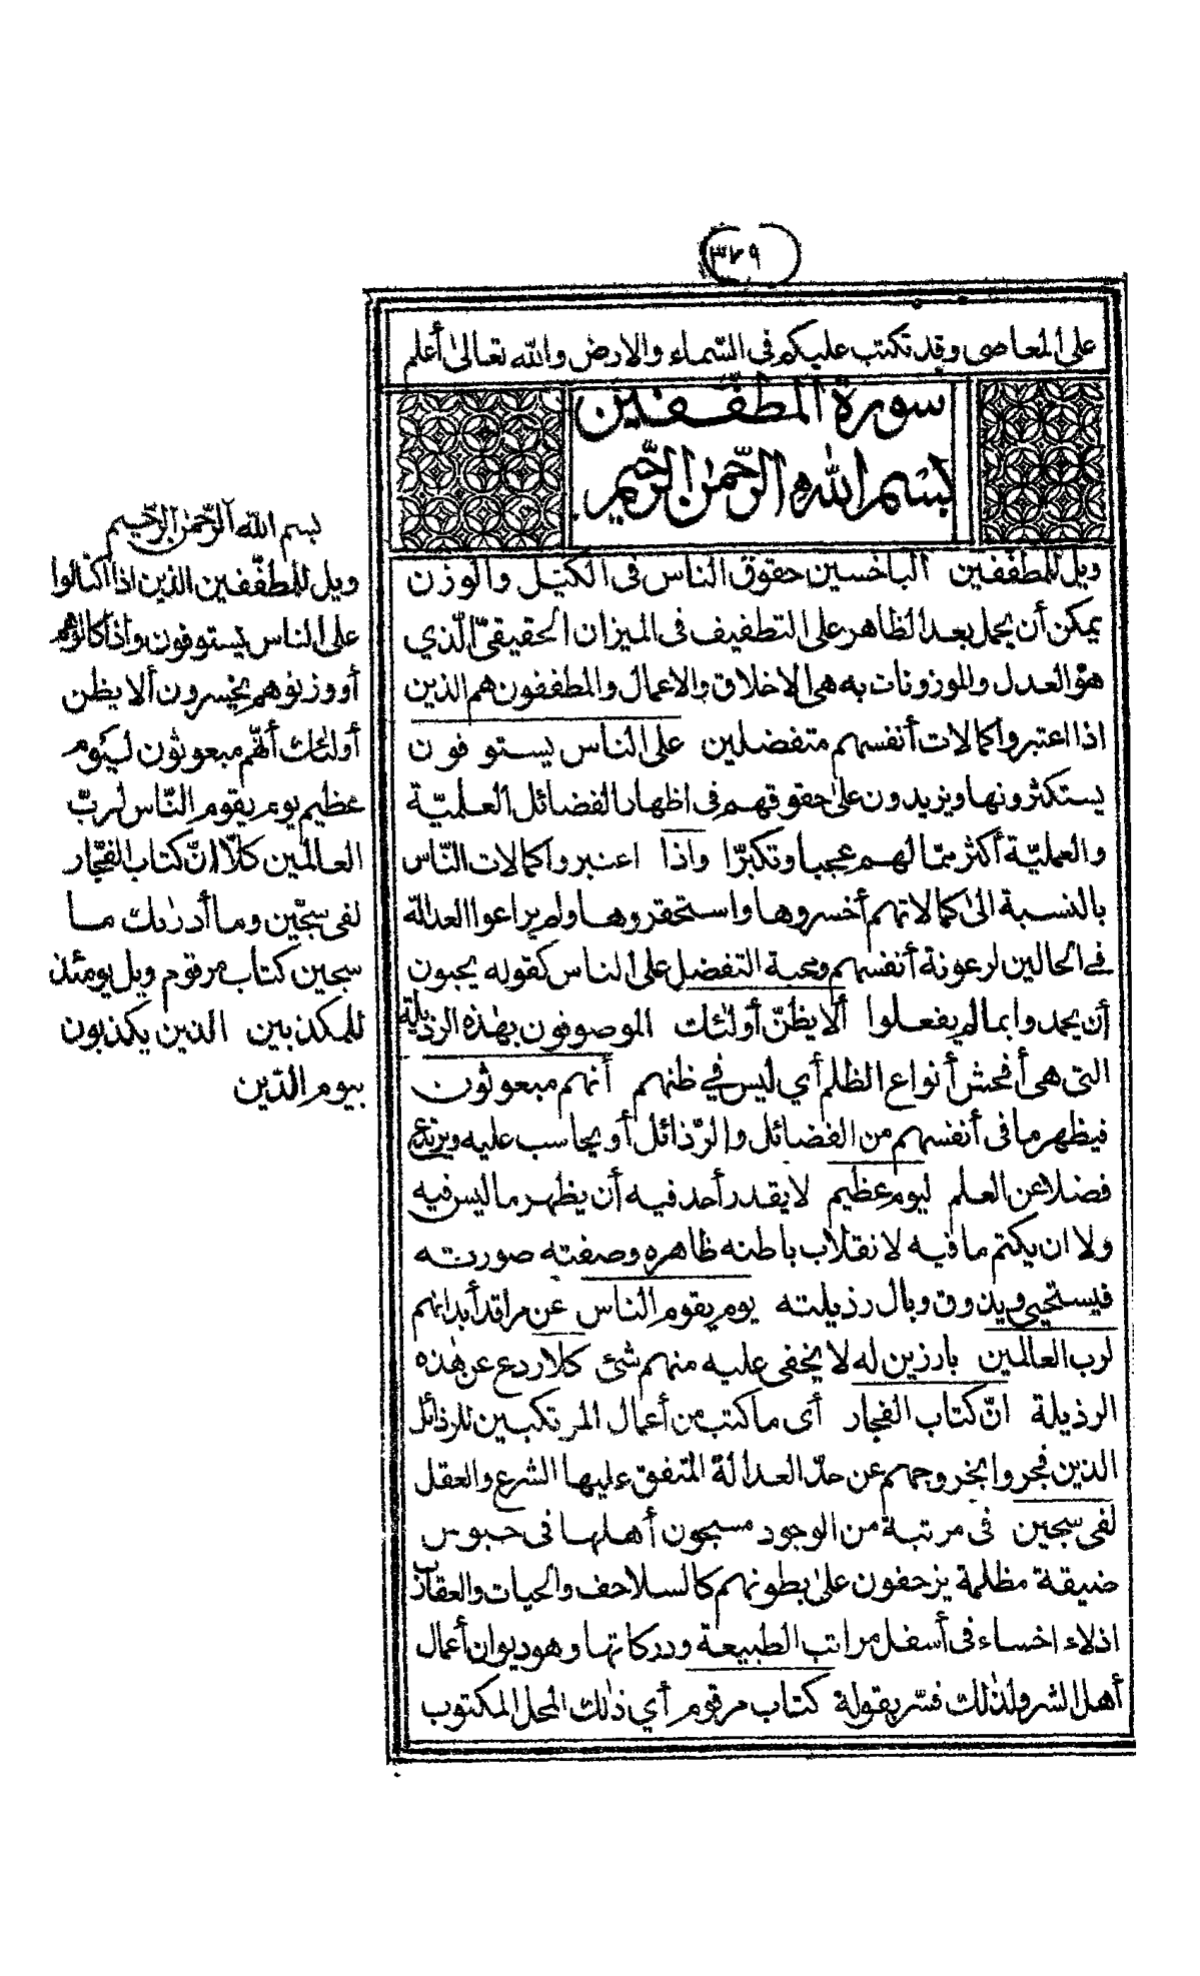 ٣٧٩
على المعاصى وقد تكتب عليكم فى السّماء والارض والله تعالى أعلم
سورة المطفّفين
بسم الله الرّحمن الرّحيم
ويل للمطفّفين الباخسين حقوق الناس فى الكيل والوزن
يمكن أن يحمل بعد الظاهر على التطفيف فى الميزان الحقيقىّ الّذي
هو العدل والموزونات به هى الاخلاق والاعمال والمطففون هم الذين
اذا اعتبروا كمالات أنفسهم متفضلين على الناس يستوفون
يستكثرونها ويزيدون على حقوقهم فى اظهار الفضائل العلميّة
والعمليّة أكثر ممّا لهم عجبا وتكبّرا واذا اعتبروا كمالات النّاس
بالنسبة الى كمالاتهم أخسروها واستحقروها ولم يراعوا العدالة
في الحالين لرعونة أنفسهم ومحبة التفضل على الناس كقوله يحبون
أن يحمدوا بما لم يفعلوا ألا يظنّ أولئك الموصوفون بهذه الرذيلة
التى هى أفحش أنواع الظلم أي ليس في ظنهم أنهم مبعوثون
فيظهر ما فى أنفسهم من الفضائل والرّذائل أو يحاسب عليه ويرتدع
فضلا عن العلم ليوم عظيم لا يقدر أحد فيه أن يظهر ما ليس فيه
ولا ان يكتم ما فيه لانقلاب باطنه ظاهره وصفته صورته
فيستحيى ويذوق وبال رذيلته يوم يقوم الناس عن مراقد أبدانهم
لرب العالمين بارزين له لا يخفى عليه منهم شئ كلا ردع عن هذه
الرذيلة انّ كتاب الفجار أى ما كتب من أعمال المرتكبين للرذائل
الذين فجروا بخروجهم عن حدّ العدالة المتفق عليها الشرع والعقل
لفى سجين فى مرتبة من الوجود مسجون أهلها فى حبوس
ضيقة مظلمة يزحفون على بطونهم كالسلاحف والحيات والعقارب
اذلاء اخساء فى أسفل مراتب الطبيعة ودركاتها وهو ديوان أعمال
أهل الشر ولذلك فسّر بقوله كتاب مرقوم أي ذلك المحل المكتوب
بسم الله الرّحمن الرّحيم
ويل للمطفّفين الذين اذا اكتالوا
على الناس يستوفون واذا كالوهم
أو وزنوهم يخسرون ألا يظن
أولئك أنّهم مبعوثون ليوم
عظيم يوم يقوم النّاس لربّ
العالمين كلّا انّ كتاب الفجّار
لفى سجّين وما أدرٰىك ما
سجين كتاب مرقوم ويل يومئذ
للمكذبين الذين يكذبون
بيوم الدّين